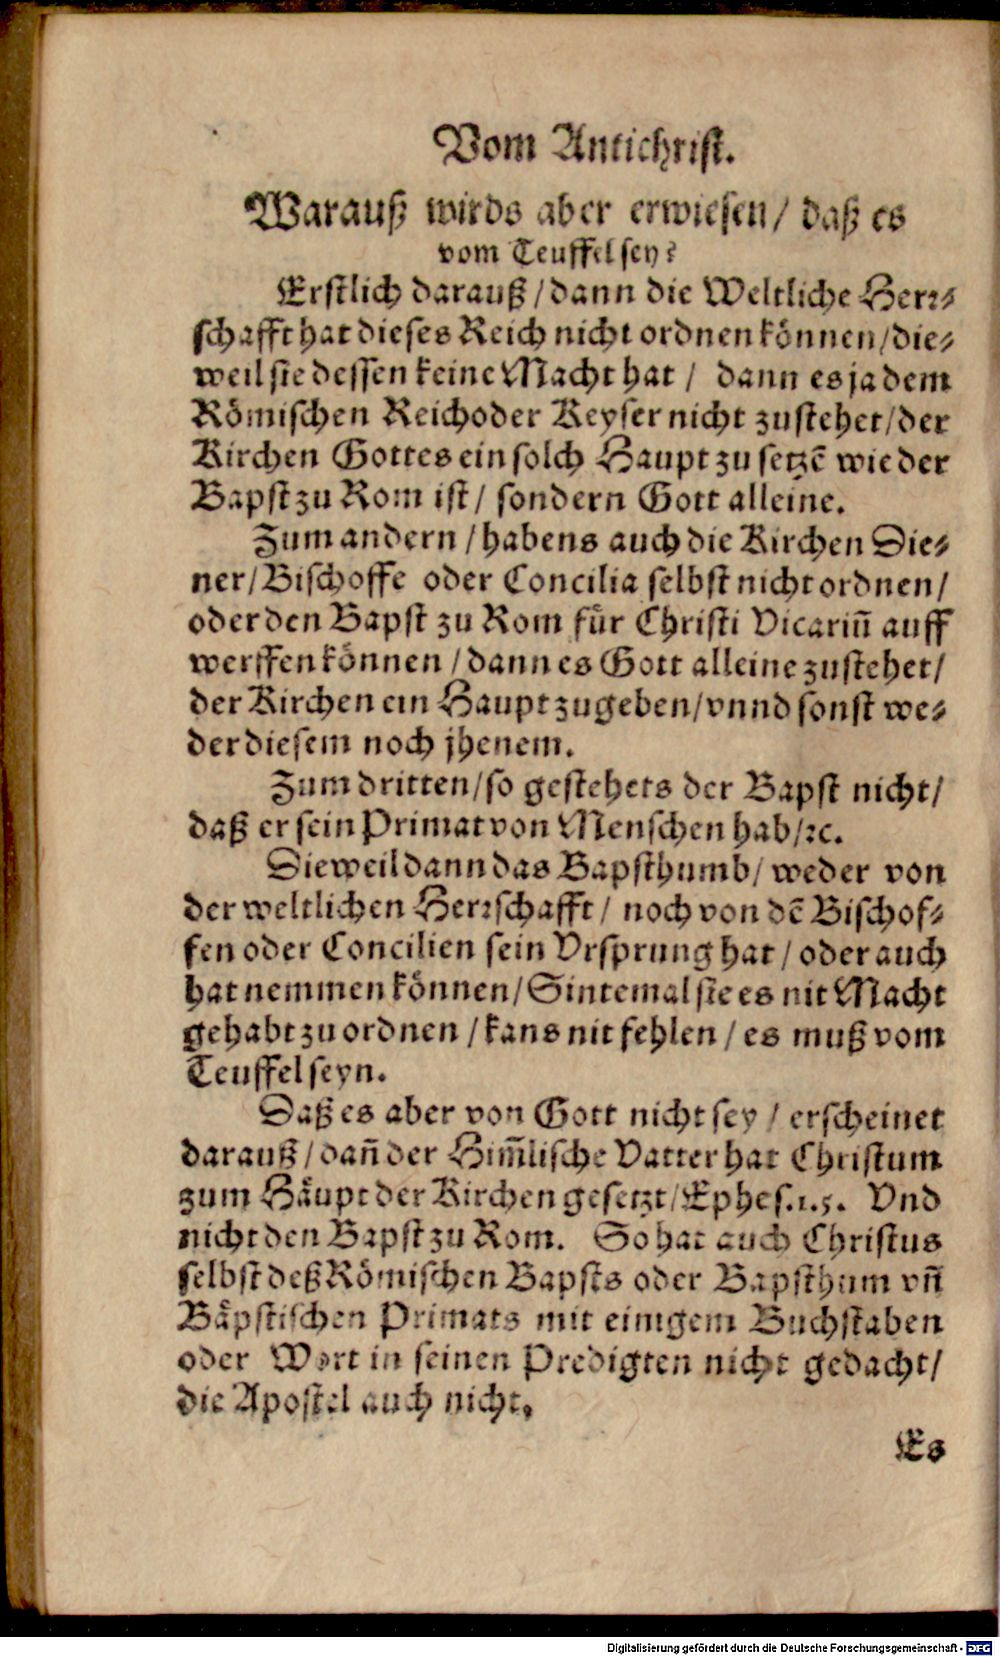 Vom Antichrist.
Warauß wirds aber erwiesen / daß es
vom Teuffel sey?
Erstlich darauß / dann die Weltliche Herr⸗
schafft hat dieses Reich nicht ordnen können / die⸗
weil sie dessen keine Macht hat / dann es ja dem
Römischen Reich oder Keyser nicht zustehet / der
Kirchen Gottes ein solch Haupt zu setzē wie der
Bapst zu Rom ist / sondern Gott alleine.
Zum andern / habens auch die Kirchen Die⸗
ner / Bischoffe oder Concilia selbst nicht ordnen /
oder den Bapst zu Rom für Christi Vicariū auff
werffen können / dann es Gott alleine zustehet /
der Kirchen ein Haupt zugeben / vnnd sonst we⸗
der diesem noch jhenem.
Zum dritten / so gestehets der Bapst nicht /
daß er sein Primat von Menschen hab / ꝛc.
Dieweil dann das Bapsthumb / weder von
der weltlichen Herrschafft / noch von dē Bischof⸗
fen oder Concilien sein Vrsprung hat / oder auch
hat nemmen können / Sintemal sie es nit Macht
gehabt zu ordnen / kans nit fehlen / es muß vom
Teuffel seyn.
Daß es aber von Gott nicht sey / erscheinet
darauß / dañ der Him̃lische Vatter hat Christum
zum Häupt der Kirchen gesetzt / Ephes. 1. 5. Vnd
nicht den Bapst zu Rom. So hat auch Christus
selbst deß Römischen Bapsts oder Bapsthum vñ
Bäpstischen Primats mit einigem Buchstaben
oder Wort in seinen Predigten nicht gedacht /
die Apostel auch nicht.
Es
Digitalisierung gefördert durch die Deutsche Forschungsgemeinschaft - DFG